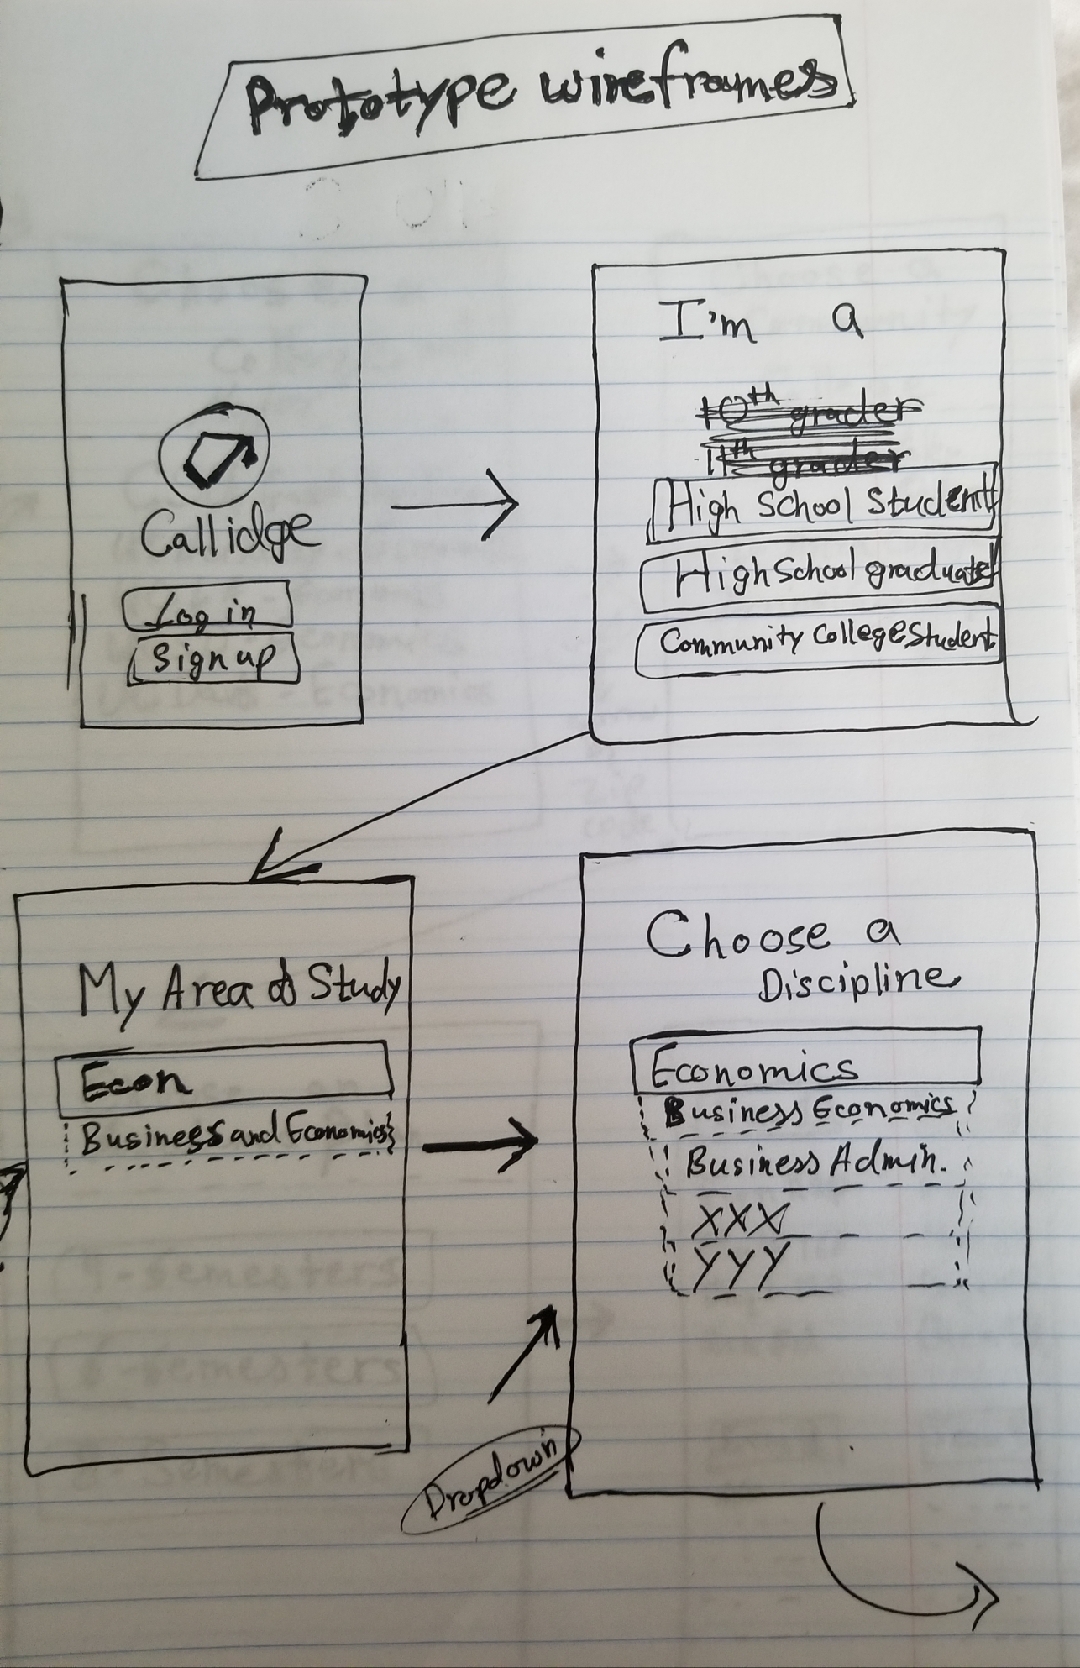 Prototype wireframes
Callidge
Log in
Sign up
I'm a
10th grader
11th grader
High School Student
High School graduate
Community College Student
My Area of Study
Econ
Business and Economics
Choose a
Discipline
Economics
Business Economics
Business Admin.
XXX
YYY
Dropdown